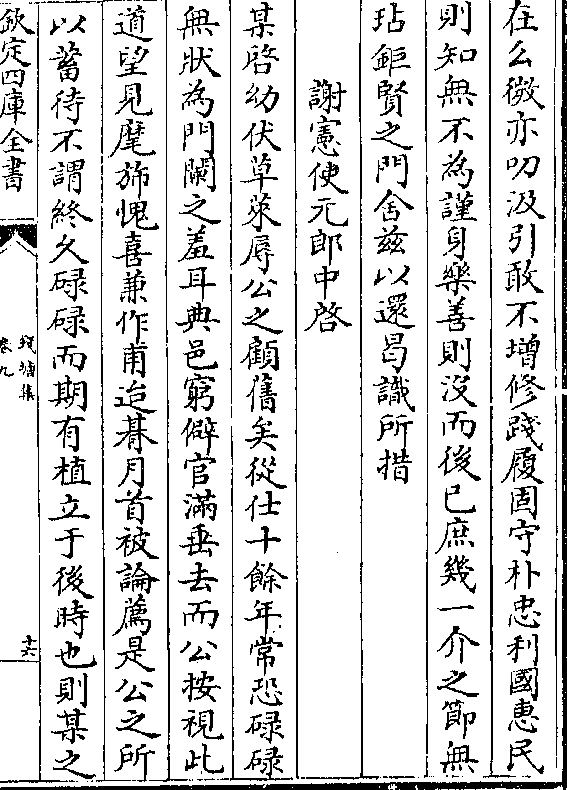 在么微亦叨汲引敢不增修踐履固守朴忠利國惠民
則知無不為謹身樂善則没而後已庶幾一介之節無
玷鉅賢之門舍兹以還曷識所措
謝憲使元郎中啓
某啓幼伏草萊辱公之顧舊矣從仕十餘年常恐碌碌
無狀為門闌之羞耳典邑窮僻官滿垂去而公按視此
道望見麾斾愧喜兼作甫迨朞月首被論薦是公之所
以蓄待不謂終久碌碌而期有植立于後時也則某之
欽定四庫全書
錢塘集
卷九
十六